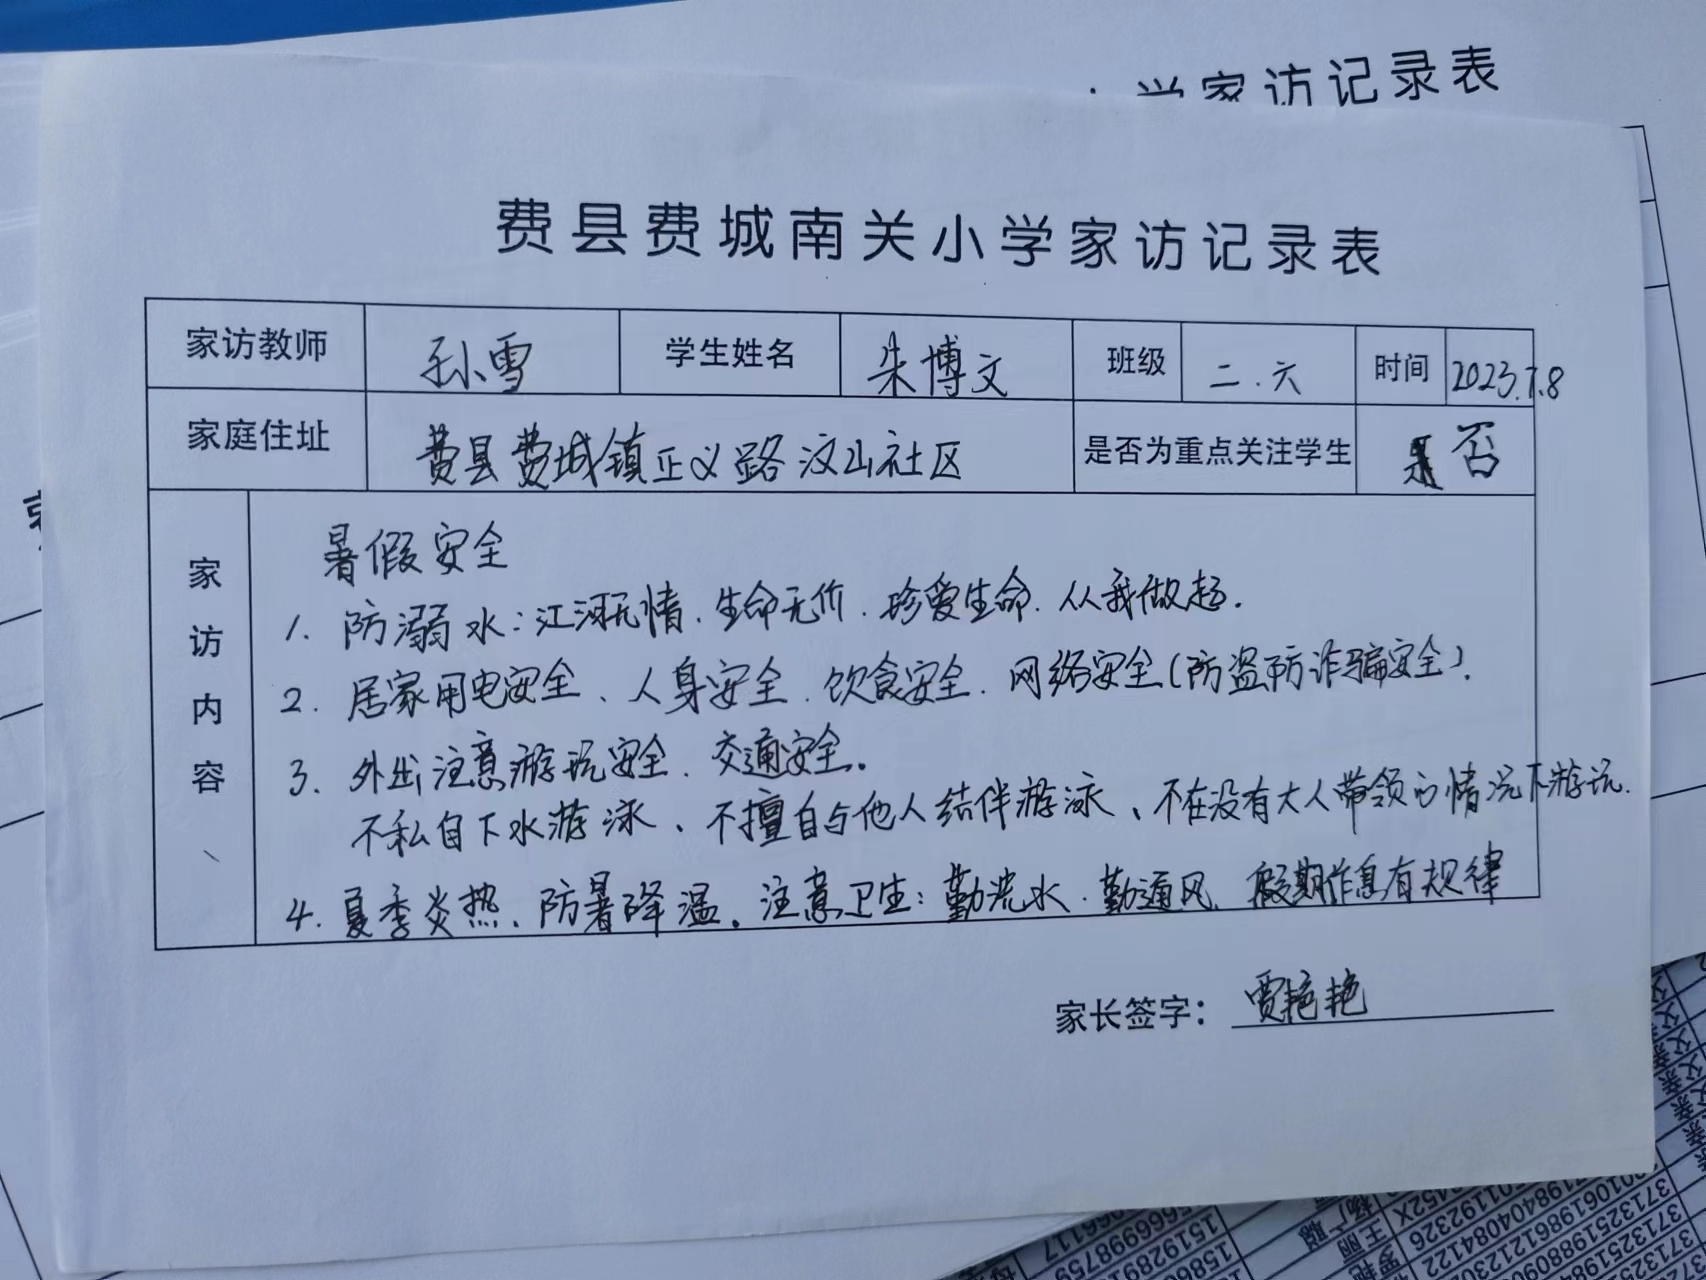 学家访记录表
费县费城南关小学家访记录表
家访教师 孙雪 学生姓名 朱博文 班级 二.六 时间 2023.7.8
家庭住址 费县费城镇正义路汶山社区 是否为重点关注学生 否
家访内容
暑假安全
1. 防溺水:江河无情、生命无价、珍爱生命、从我做起.
2. 居家用电安全、人身安全、饮食安全、网络安全(防盗防诈骗安全).
3. 外出注意游玩安全、交通安全。
不私自下水游泳、不擅自与他人结伴游泳、不在没有大人带领的情况下游玩.
4. 夏季炎热、防暑降温。注意卫生:勤洗水、勤通风、假期作息有规律
家长签字: 贾艳艳